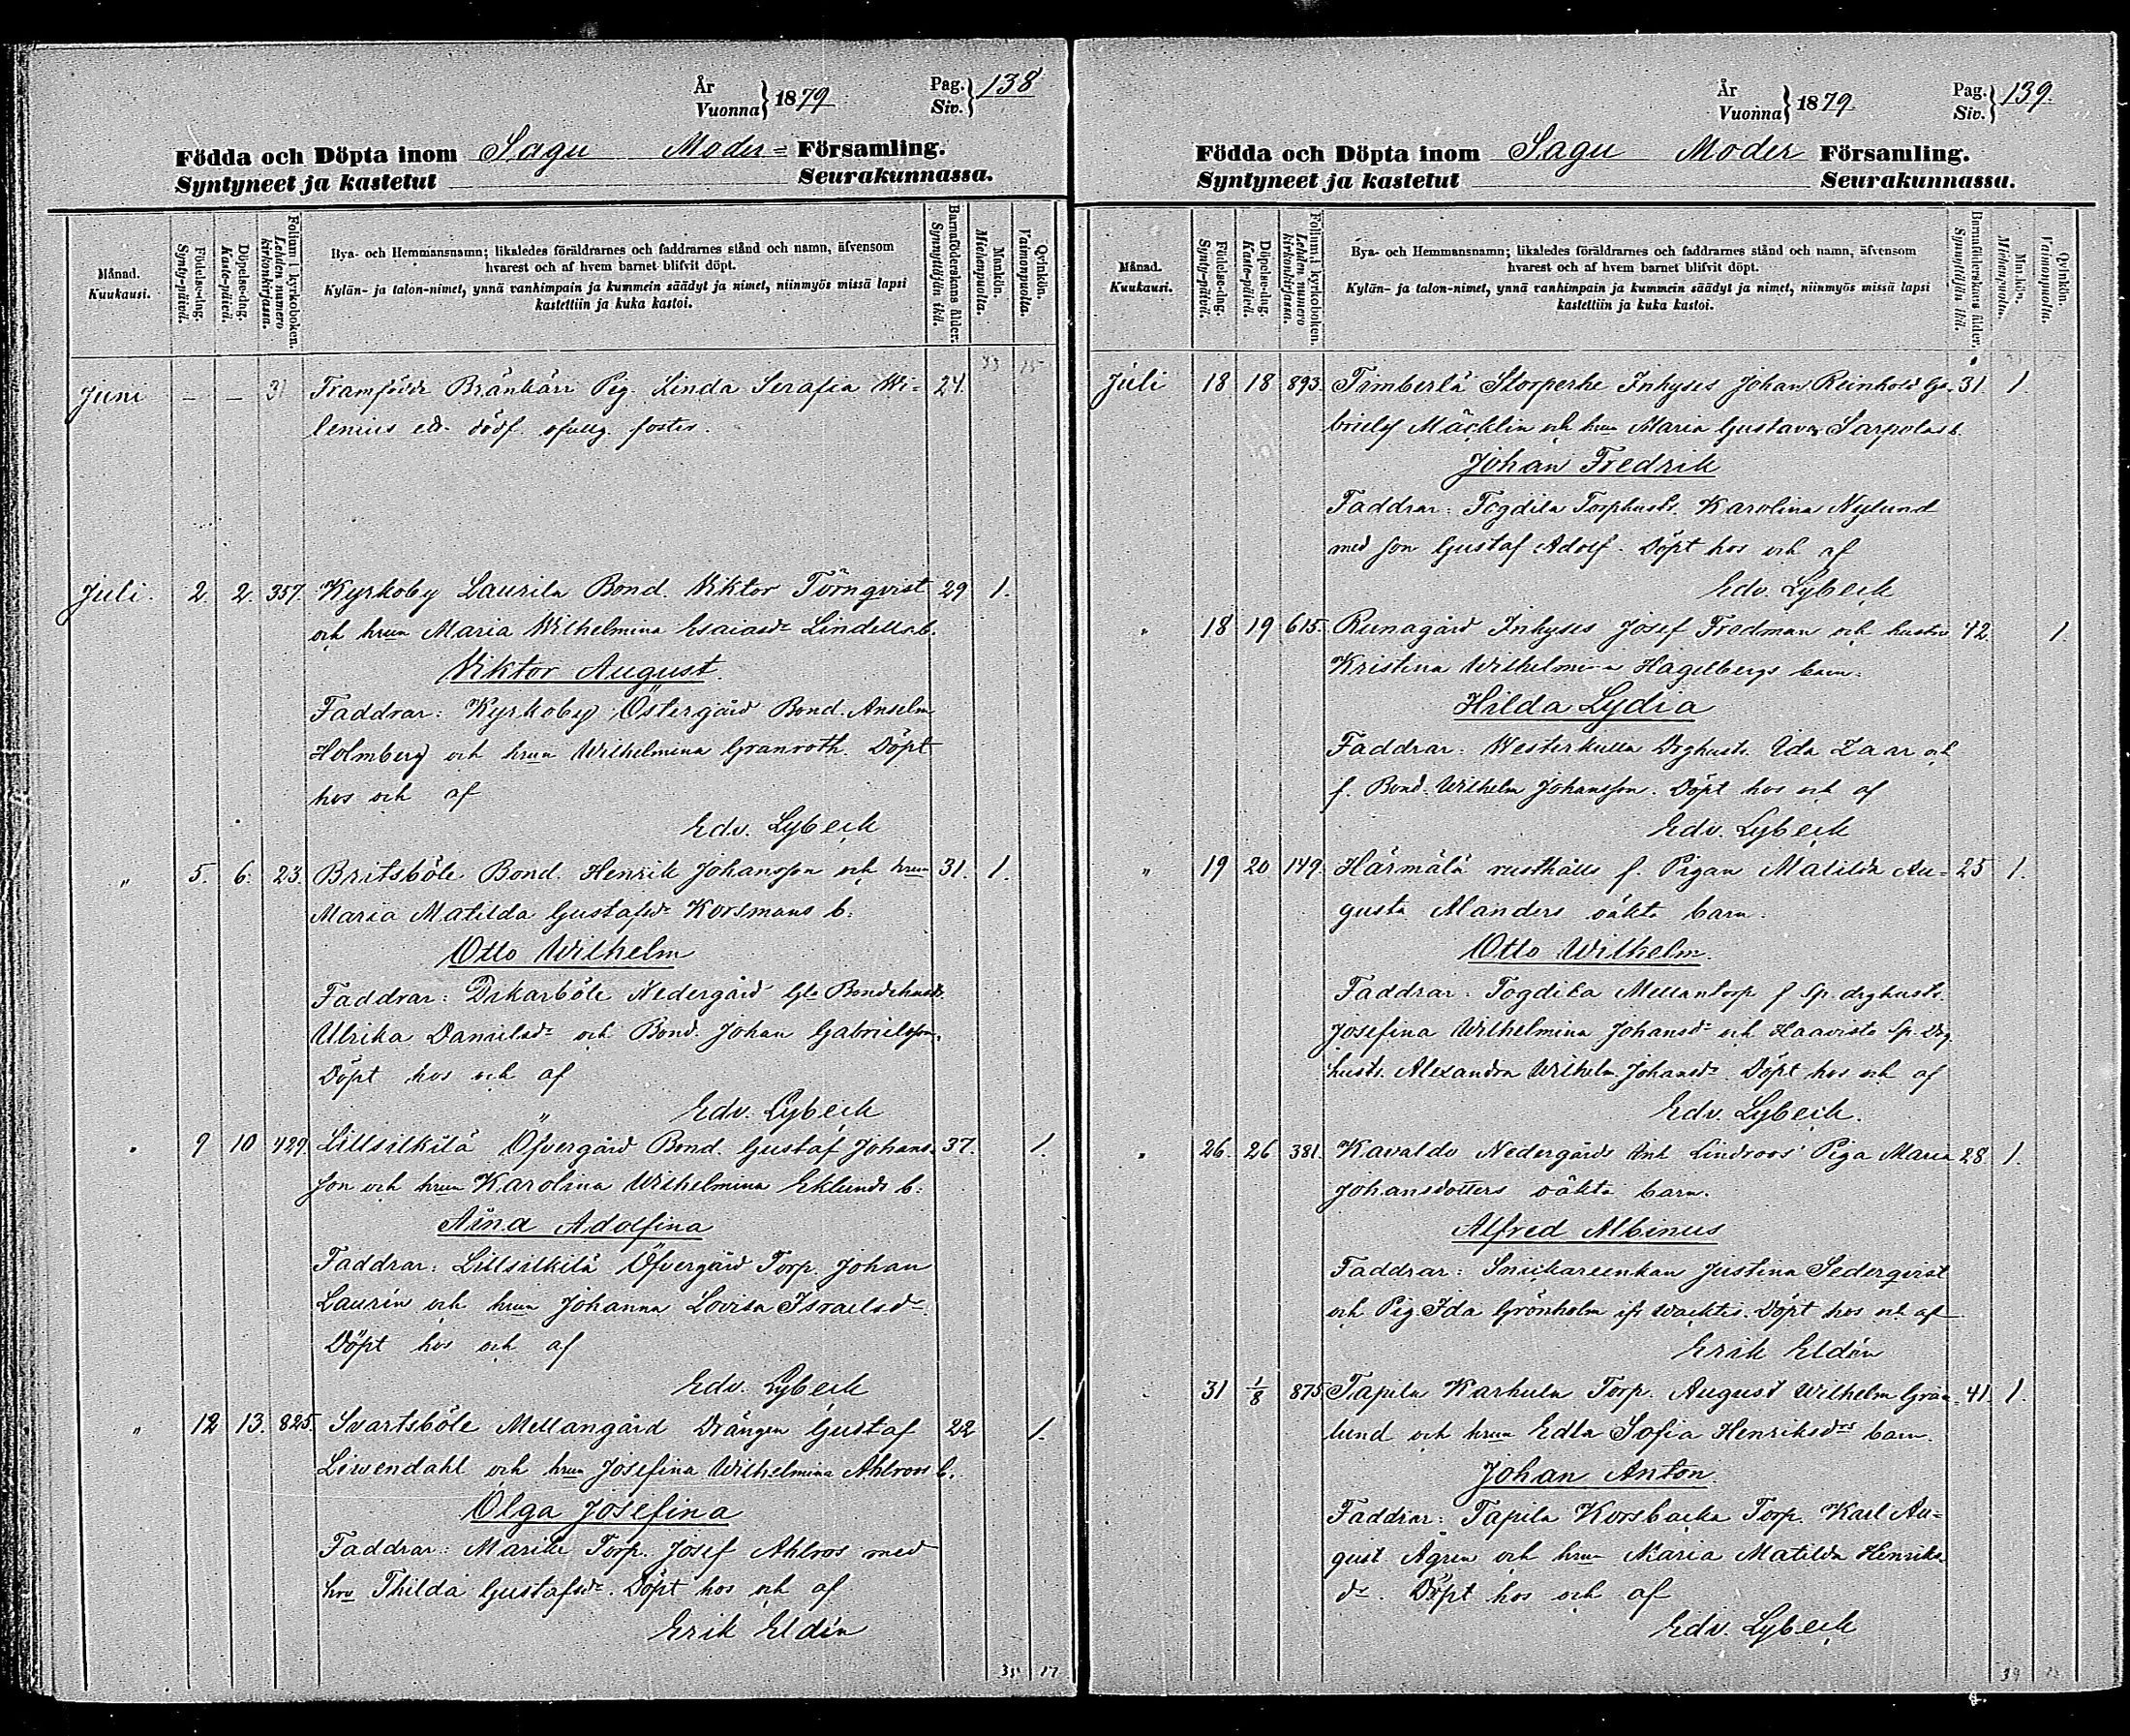 År
Vuonna} 1879
Pag.
Siv.} 138
Födda och Döpta inom Sagu Moder= Församling.
Syntyneet ja kastetut Seurakunnassa.
Månad.
Kuukausi.
Födelse-dag.
Synty-päivä.
Döpelse-dag.
Kaste-päivä.
Folium i kyrkoboken.
Lehden numero kirkonkirjassa.
Bya- och Hemmansnamn; likaledes föräldrarnes och faddrarnes stånd och namn, äfvensom
hvarest och af hvem barnet blifvit döpt.
Kylän- ja talon-nimet, ynnä vanhimpain ja kummein säädyt ja nimet, niinmyös missä lapsi
kastettiin ja kuka kastoi.
Barnaföderskans ålder.
Synnyttäjän ikä.
Mankön.
Miehenpuolta.
Qvinkön.
Vaimonpuolta.
Juni — — 31 Framförde Bränkärr Pig. Linda Serafia Wi- 24
lenius dödf. ofullg. foster.
Juli. 2. 2. 357. Kyrkoby Laurila Bond. Viktor Törnqvist 29 1.
och hrun Maria Wilhelmina Esaiasdr Lindells b.
Viktor August.
Faddrar: Kyrkoby Östergård Bond. Anselm
Holmberg och hrun Wilhelmina Granroth. Döpt
hos och af
Edv. Lybeck
" 5. 6. 23. Britsböle Bond. Henrik Johansson och hrun 31. 1.
Maria Matilda Gustafsdr Korsmans b.
Otto Wilhelm
Faddrar: Drkarböle Nedergård Gle Bondehustr.
Ulrika Danielsdr och Bond. Johan Gabrielsson.
Döpt hos och af
Edv. Lybeck
" 9 10 429. Lillsilkilä Öfvergård Bond. Gustaf Johans- 37. 1.
son och hrun Karolina Wilhelmina Eklunds b:
Aina Adolfina
Faddrar: Lillsilkilä Öfvergård Torp. Johan
Laurin och hrun Johanna Lovisa Israelsdr.
Döpt hos och af
Edv. Lybeck
" 12 13. 825. Svartsböle Mellangård Drängen Gustaf 22 1.
Liwendahl och hrun Josefina Wilhelmina Ahlroos b.
Olga Josefina
Faddrar: Marike Torp. Josef Ahlros med
hru Thilda Gustafsdr. Döpt hos och af
Erik Eldén
35 17
År
Vuonna} 1879
Pag.
Siv.} 139.
Födda och Döpta inom Sagu Moder Församling.
Syntyneet ja kastetut Seurakunnassa.
Månad.
Kuukausi.
Födelse-dag.
Synty-päivä.
Döpelse-dag.
Kaste-päivä.
Folium i kyrkoboken.
Lehden numero kirkonkirjassa.
Bya- och Hemmansnamn; likaledes föräldrarnes och faddrarnes stånd och namn, äfvensom
hvarest och af hvem barnet blifvit döpt.
Kylän- ja talon-nimet, ynnä vanhimpain ja kummein säädyt ja nimet, niinmyös missä lapsi
kastettiin ja kuka kastoi.
Barnaföderskans ålder.
Synnyttäjän ikä.
Mankön.
Miehenpuolta.
Qvinkön.
Vaimonpuolta.
Juli 18 18 893. Timberlä Storperhe Inhyses Johan Reinhold Ga- 31. 1.
briels Mäcklin och hrun Maria Gustava Sarpolas b.
Johan Fredrik
Faddrar: Togdila Torphustr. Karolina Nylund
med son Gustaf Adolf. Döpt hos och af
Edv. Lybeck
" 18 19 615. Runagård Inhyses Josef Fredman och hustru 42 1.
Kristina Wilhelmina Hagelbergs barn.
Hilda Lydia
Faddrar: Westerkulla Drghustr. Ida Zaar och
f. Bond. Wilhelm Johansson. Döpt hos och af
Edv. Lybeck
" 19 20 149. Härmälä rusthålls f. Pigan Matilda Au- 25 1.
gusta Alanders oäkta barn.
Otto Wilhelm.
Faddrar: Togdila Mellantorp f Sp. drghustr.
Josefina Wilhelmina Johansdr och Haavisto Sp. Drg
hustr. Alexandra Wilhelm. Johansdr. Döpt hos och af
Edv. Lybeck.
" 26. 26 381. Kavaldo Nedergårds Enk Lindroos' Piga Maria 28 1.
Johansdotters oäkta barn.
Alfred Albinus
Faddrar: Snickareenkan Justina Sederqvist
och Pig. Ida Grönholm ifr. Döpt hos och af
Erik Eldén
31 1/8 875 Tapila Karhula Torp. August Wilhelm Grön- 41. 1.
lund och hrun Edla Sofia Henriksdrs barn.
Johan Anton
Faddrar: Tapila Korsbacka Torp. Karl Au-
gust Ågren och hrun Maria Matilda Henriks-
dr. Döpt hos och af
Edv. Lybeck